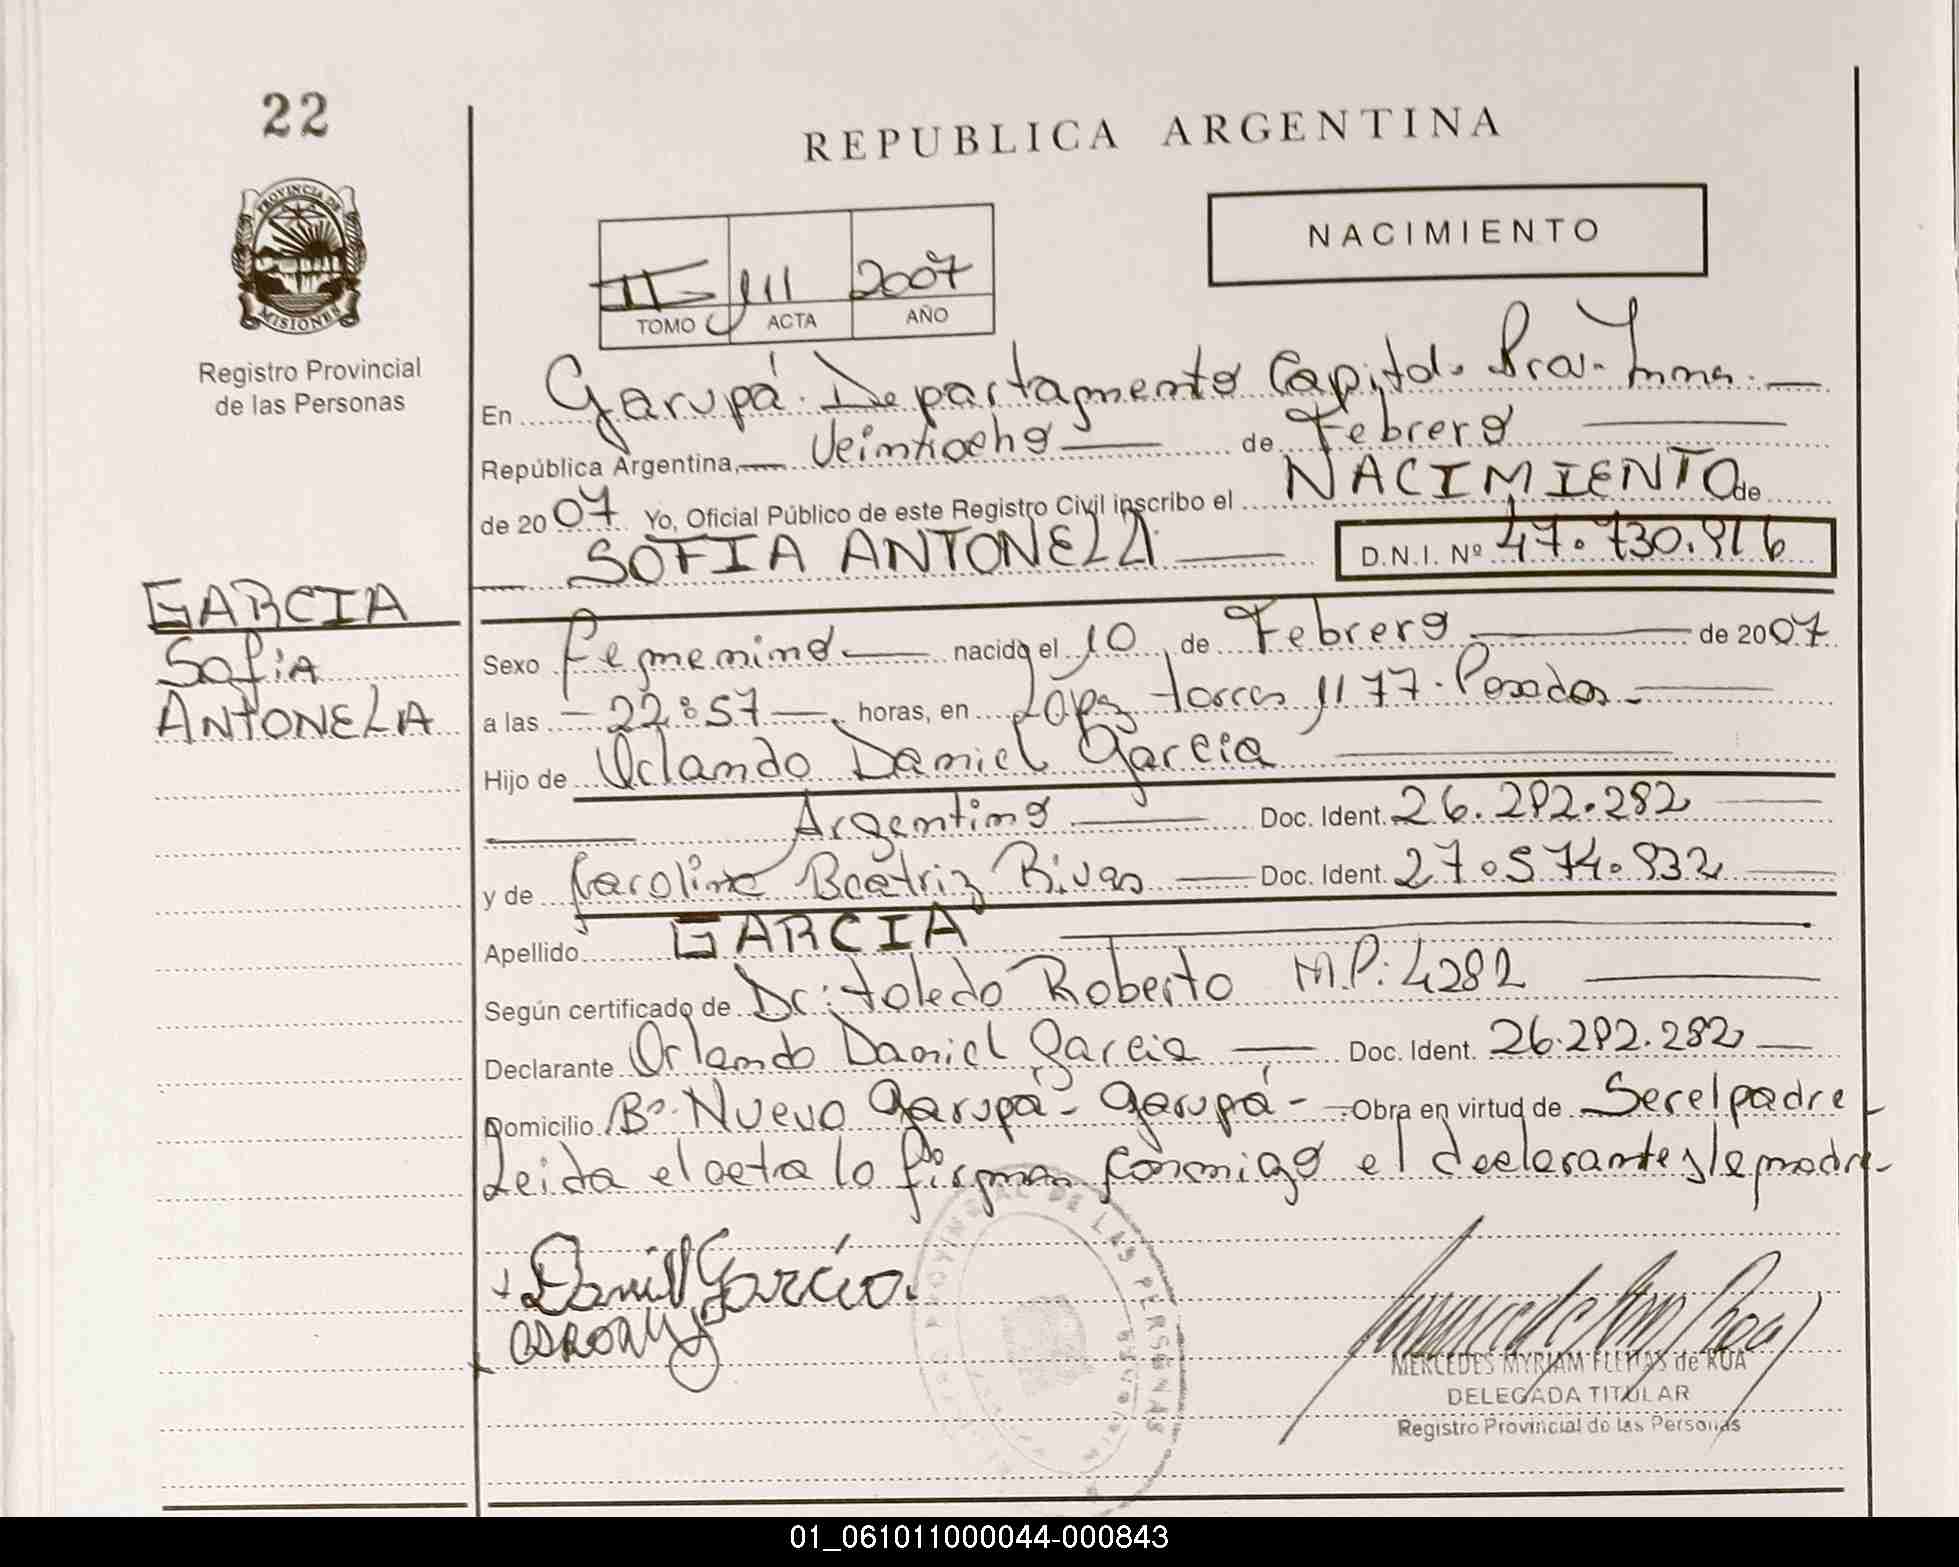 22
REPUBLICA ARGENTINA
PROVINCIA DE
MISIONES
Registro Provincial
de las Personas
NACIMIENTO
II 111 2007
TOMO ACTA AÑO
En Garupá. Departamento Capital. Pcia.
República Argentina, Veintiocho de Febrero
de 2007 Yo, Oficial Público de este Registro Civil inscribo el NACIMIENTO de
SOFIA ANTONELA D.N.I. Nº
GARCIA
SofiA
ANTONELA
Sexo Femenino nacido el 10 de Febrero de 2007
a las 22:57 horas, en López torres 1177. Posadas
Hijo de Orlando Daniel Garcia
Argentino Doc. Ident. 26.282.282
y de Carolina Beatriz Rivas Doc. Ident. 27.574.832
Apellido GARCIA
Según certificado de Dr: toledo Roberto M.P: 4282
Declarante Orlando Daniel Garcia Doc. Ident. 26.282.282
Domicilio Bº. Nuevo Garupá - Garupá - Obra en virtud de Ser el padre
Leida el acta lo firman conmigo el declarante y la madre
Daniel Garcia
MERCEDES MYRIAM FLEITAS de ROA
DELEGADA TITULAR
Registro Provincial de las Personas
01_061011000044-000843